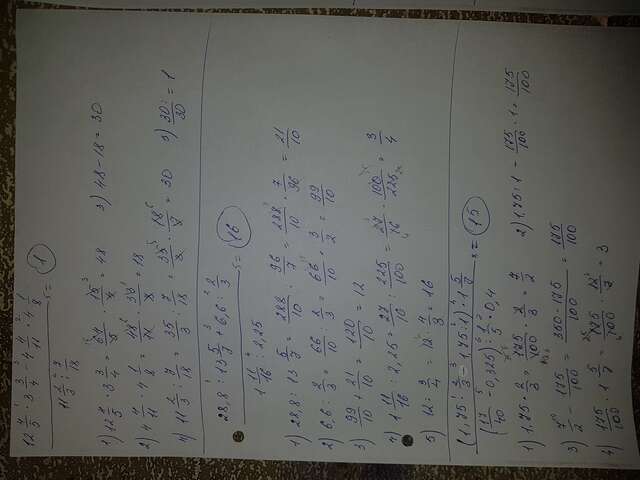 12 4/5 · 3 3/4 - 4 4/11 · 4 1/8
11 2/3 : 7/18 = 1
1) 12 4/5 · 3 3/4 = 64/5 · 15/4 = 48 3) 48 - 18 = 30
2) 4 4/11 · 4 1/8 = 48/11 · 33/8 = 18
4) 11 2/3 : 7/18 = 35/3 : 7/18 = 35/3 · 18/7 = 30 5) 30/30 = 1
28,8 : 13 5/7 + 6,6 : 2/3
1 11/16 : 2,25 = 16
1) 28,8 : 13 5/7 = 288/10 · 96/7 = 288/10 · 7/96 = 21/10
2) 6,6 : 2/3 = 66/10 : 2/3 = 66/10 · 3/2 = 99/10
3) 99/10 + 21/10 = 120/10 = 12
4) 1 11/16 : 2,25 = 27/10 : 225/100 = 27/16 · 100/225 = 3/4
5) 12 : 3/4 = 12 · 4/3 = 16
(1,75 : 2/3 - 1,75 : 1) · 1 5/7
(17/40 - 0,325) : 1/5 · 0,4 = 15
1) 1,75 · 2/3 = 175/100 · 2/3 = 7/2 2) 1,75 : 1 - 175/100 · 1 = 175/100
3) 7/2 - 175/100 = 350-175/100 = 175/100
4) 175/100 · 1 5/7 = 175/100 · 12/7 = 3